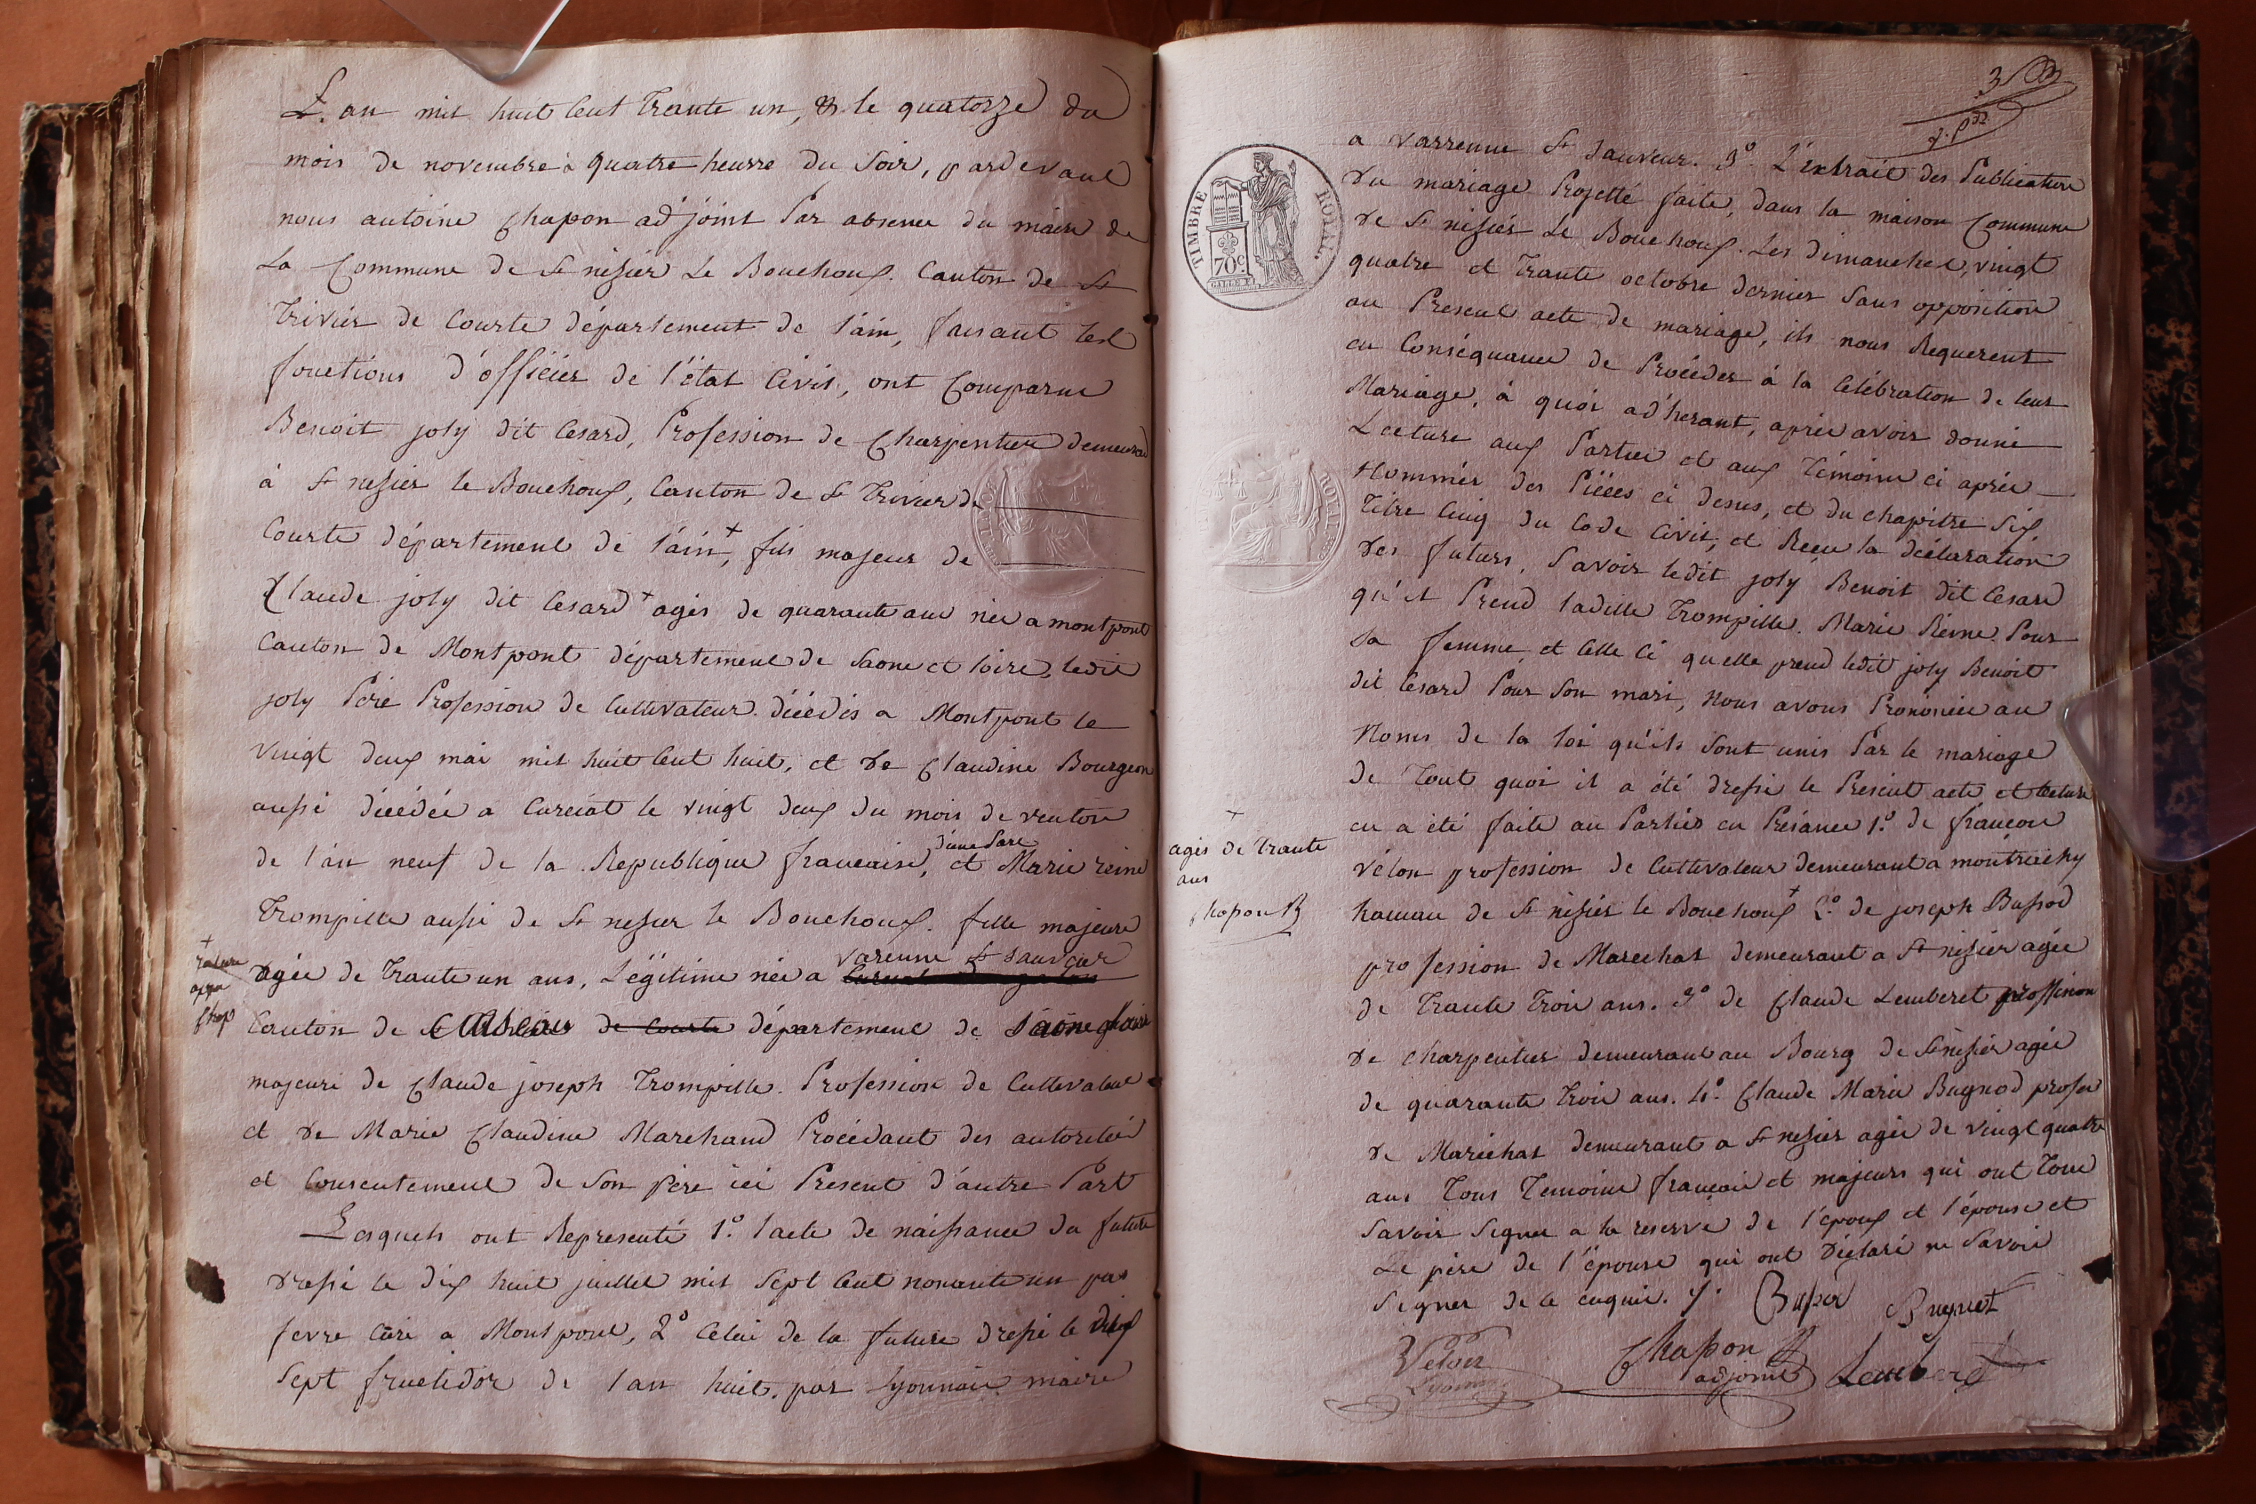 L'an mil huit Cent trante un, & le quatorze du
mois de novembre à quatre heurre du Soir, pardevant
nous antoine Chapon ad'joint Par absence du maire de
La Commune de St nesier Le Bouchoux. Canton de St
Trivier de Courte département de l'ain, faisant les
fonctions d'officier de l'état Civil, ont Comparue
Benoit joly dit Cesard, Profession de Charpentier demeurant
à St nesier le Bouchoux, Canton de St Trivier de
Courte département de l'ain +, fils majeur de
Claude joly dit Cesard + agés de quarante ans née a montpont
Canton de Montpont département de Saone et loire, ledit
joly Père Profession de Cultivateur décédés a Montpont le
vingt deux mai mil huit Cent huit, et de Claudine Bourgeon
aussi décédée a Curciat le vingt deux du mois de ventose
de l'an neuf de la Republique francaise, d'une Part et Marie reine
Trompille aussi de St nesier le Bouchoux. fille majeure
+
rature
agée de trante un ans, Légitime née a varenne St Sauveur
Chap
Canton de Cuiseaux de Courte département de Saone et loire
majeure de Claude joseph Trompille. Profession de Cultivateur
et de Marie Claudine Marchand Procédant des autorités
et Consentement de Son père ici Present d'autre Part
Lesquels ont Representé 1.° l'acte de naissance du future
dressé le dix huit juillet mil Sept Cent nonante un par
fevre Curé a Montpont, 2° Celui de la future dressé le dix
Sept fructidor de l'an huit. par Lyonnais maire
3
a varrenne St Sauveur. 3° L'extrait des Publication
TIMBRE ROYAL.
70c.
du mariage Projetté faite, dans la maison Commune
de St nesier Le Bouchoux. Les dimanches, vingt
quatre et trante octobre dernier Sans opposition
au Present acte de mariage, ils nous Requerent
en Conséquance de Procéder à la Célébration de leur
Mariage, à quoi ad'herant, après avoir donné
Lecture aux Parties et aux Témoins ci après
Nommés des Pièces ci desus, et du chapitre Six
Titre Cinq du Code Civil, et Reçu la déclaration
des futurs, Savoir ledit joly Benoit dit Cesard
qu'il Prend ladille Trompille. Marie Reine Pour
Sa femme, et Celle Ci quelle prend ledit joly Benoit
dit Cesard Pour Son mari, Nous avons Prononcée au
Noms de la loi qu'ils Sont unis Par le mariage
de Tout quoi il a été dressé le Present acte et lecture
en a été faite au Parties en Présance 1.° de françois
+
agés de trante
ans
Chapon
vélon profession de Cultivateur demeurant a montrachy
hameau de St nesier le Bouchoux + 2.° de joseph Bussod
profession de Marechal demeurant a St nesier agée
de Trante trois ans. 3° de Claude Lemberet proffesion
de charpentier demeurant au Bourg de St nesier agée
de quarante trois ans. 4.° Claude Marie Bugnod profes
de Maréchal demeurant a St nesier agée de vingt quatre
ans Tous Temoins francais et majeurs qui ont Tous
Savoir Signer a la reserve de l'époux et l'épouse et
Le père de l'épouse qui ont déclaré ne Savoir
Signer de ce enquis. Bugniet
Velon Chapon adjoint Lemberet